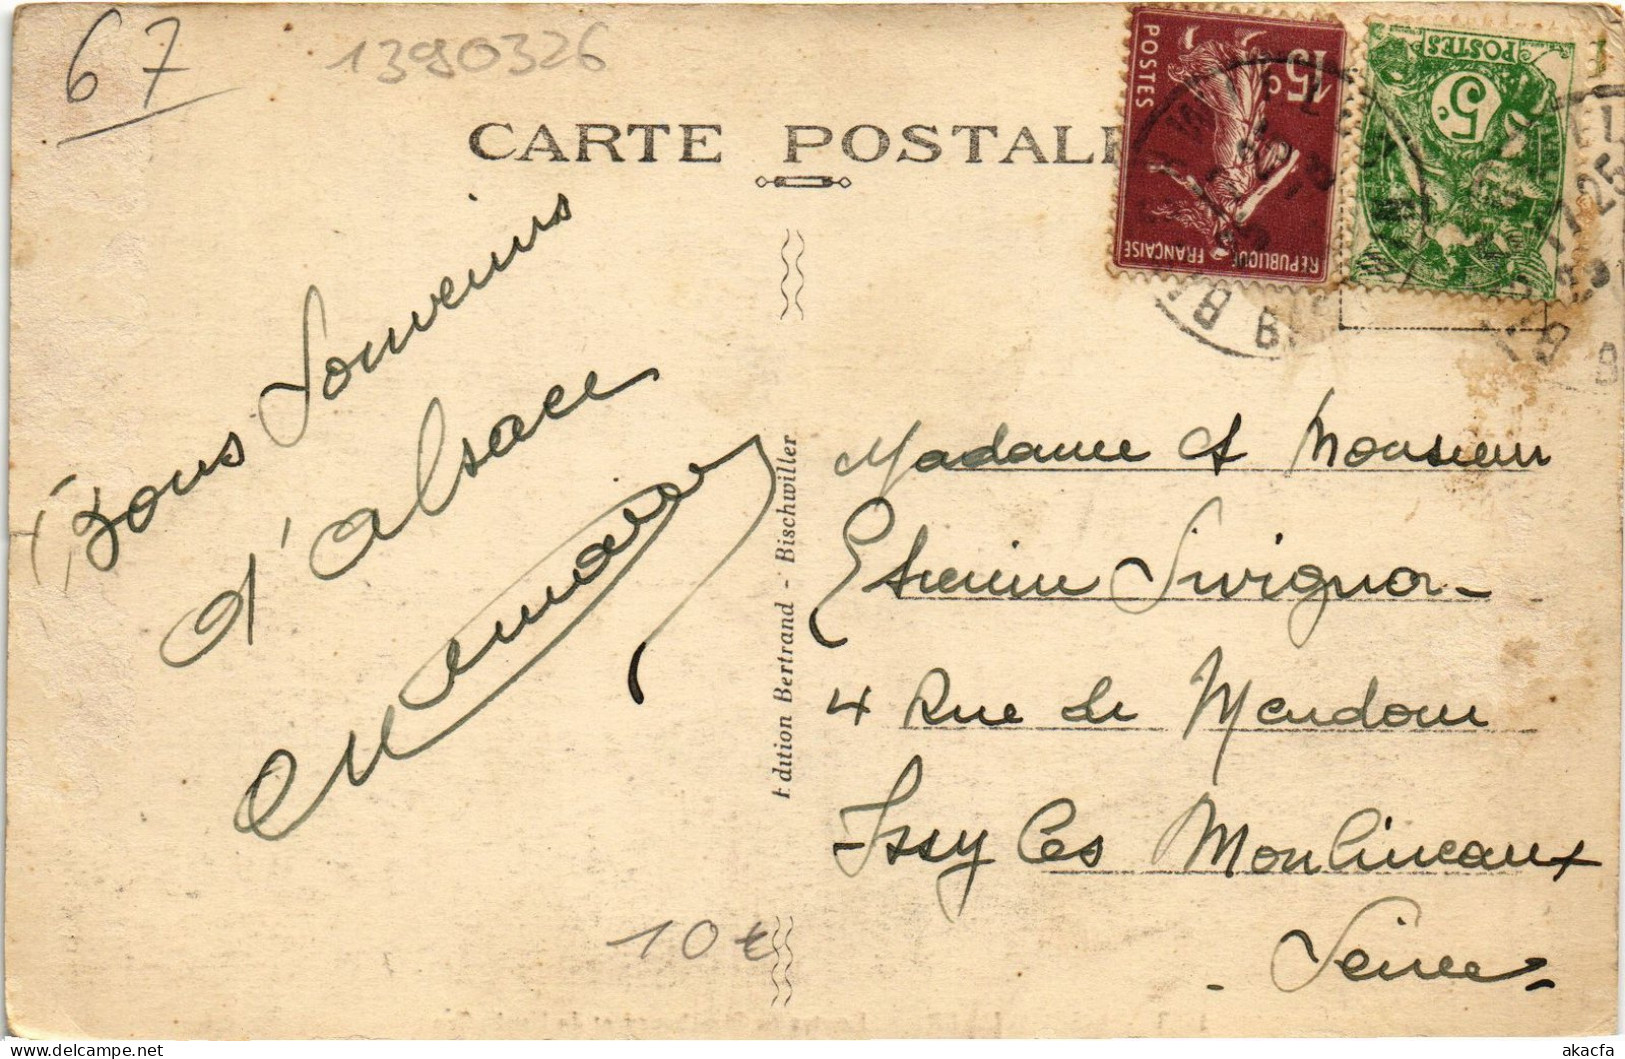 67
1390326
CARTE POSTALE
POSTES
15c
REPUBLIQUE FRANÇAISE
POSTES
5c
Bons Souvenirs
d'alsace
Edition Bertrand - Bischwiller
Madame et Monsieur
Etienne Sivignon
4 Rue de Meudon
Issy les Moulineaux
Seine
10 €
akacfa